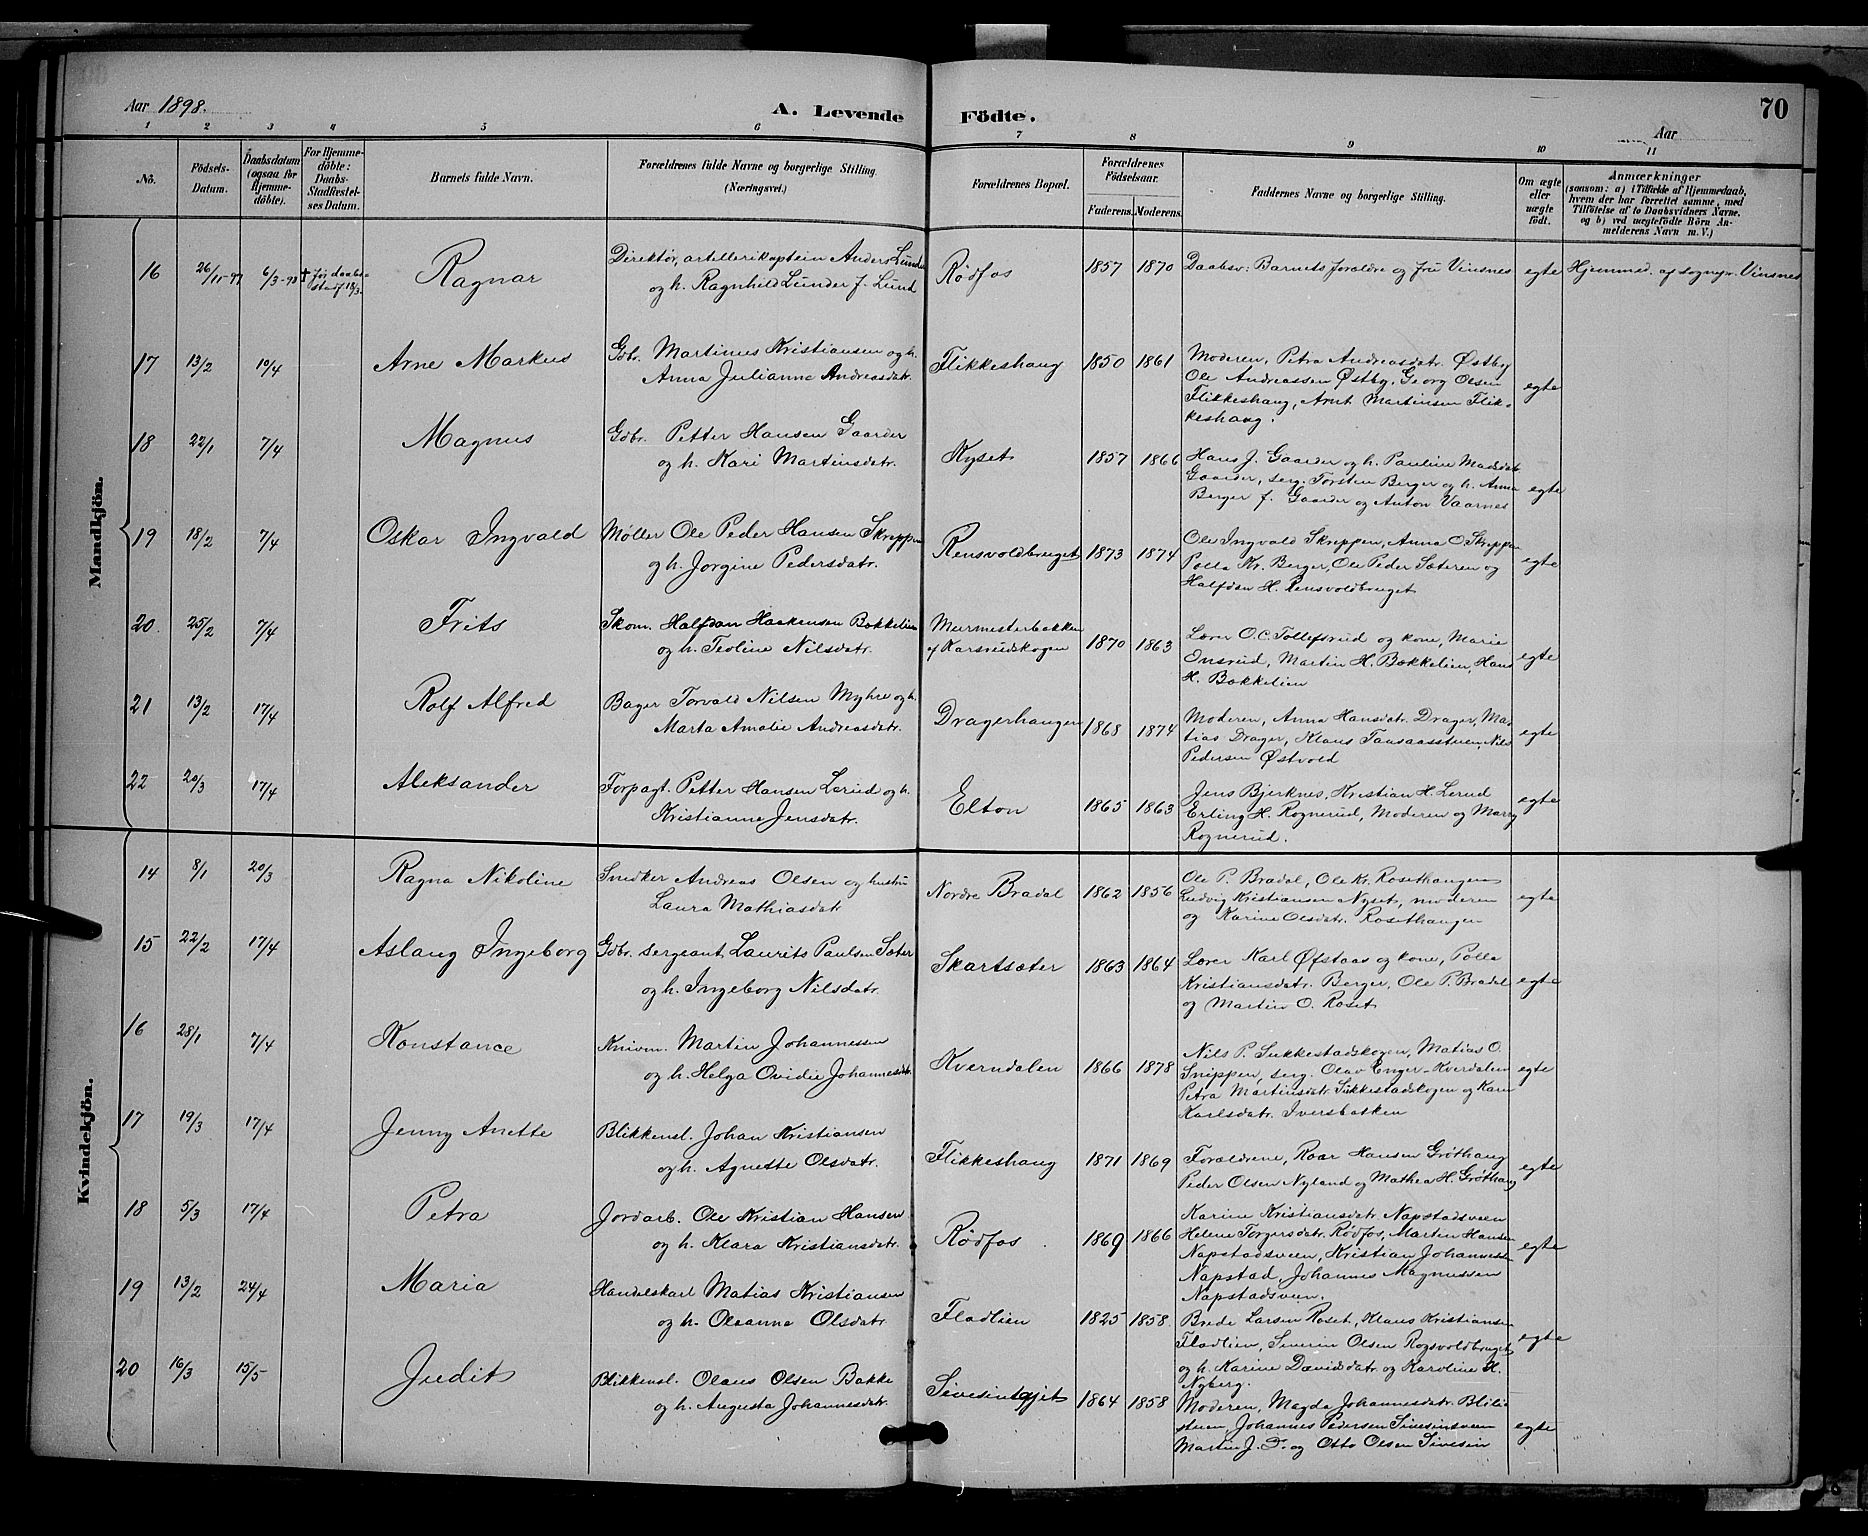 Aar 1898.
A. Levende Födte.
Aar
70
1 2 3 4 5 6 7 8 9 10 11
No.
Födsels-Datum.
Daabsdatum (ogsaa for Hjemmedöbte).
For Hjemmedöbte: Daabs-Stadfæstelses Datum.
Barnets fulde Navn.
Forældrenes fulde Navne og borgerlige Stilling. (Næringsvei.)
Forældrenes Bopæl.
Forældrenes Födselsaar.
Faderens. Moderens.
Faddernes Navne og borgerlige Stilling.
Om ægte eller uægte födt.
Anmærkninger
(saasom: a) i Tilfælde af Hjemmedaab, hvem der har forrettet samme, med Tilföielse af to Daabsvidners Navne, og b) ved uægtefödte Börn Anmelderens Navn m. V.)
Mandkjön.
16 26/11-97 6/3-98 † før daabsstadf. 18/3. Ragnar Direktør, artillerikaptein Anders Lunder og h. Ragnhild Lunder f. Lund Rødfos 1857 1870 Daabsv: Barnets forældre og fru Vinsnes egte Hjemmed. af sognepr. Vinsnes
17 13/2 10/4 Arne Markus Gdbr. Martinus Kristiansen og h. Anna Julianne Andreasdatr. Flikkeshaug 1850 1861 Moderen, Petra Andreasdatr. Østby Ole Andreassen Østby, Georg Olsen Flikkeshaug, Arnt Martinsen Flikkeshaug. egte
18 22/1 7/4 Magnus Gdbr. Petter Hansen Gaarder og h. Kari Martinsdatr. Kyset 1857 1866 Hans J. Gaarder og h. Pauline Madsdatr. Gaarder, serg. Torsten Berger og h. Anna Berger f. Gaarder og Anton Vaarnes egte
19 18/2 7/4 Oskar Ingvald Møller Ole Peder Hansen Skreppen og h. Jorgine Pedersdatr. Rensvoldbruget 1873 1874 Ole Ingvald Skreppen, Anna O. Skreppen Palla Kr. Berger, Ole Peder Sæteren og Halfdan H. Rensvoldbruget egte
20. 25/2 7/4 Frits Skom. Halfdan Haakensen Bækkelien og h. Teoline Nilsdatr. Murmesterbakken af Karsrudskogen 1870 1863 Lærer O.C. Tollefsrud og kone, Marie Onsrud, Martin H. Bækkelien, Hans H. Bækkelien egte
21 13/2 17/4 Rolf Alfred Bager Torvald Nilsen Myhre og h. Marta Amalie Andreasdatr. Dragerhaugen 1868 1874 Moderen, Anna Hansdatr. Drager, Matias Drager, Klaus Taasaasstuen, Nils Pedersen Østvold egte
22 20/3 17/4 Aleksander Forpagt. Petter Hansen Lerud og h. Kristianne Jensdatr. Elton 1865 1863 Jens Bjerknes, Kristian H. Lerud Erling H. Rognerud, Moderen og Marry Rognerud. egte
Kvindekjön.
14 8/1 20/3 Ragna Nikoline Snedker Andreas Olsen og hustru Laura Mathiasdatr. Nordre Bradal 1862 1856 Ole P. Bradal, Ole Kr. Rosethaugen Ludvig Kristiansen Nyset, moderen og Karine Olsdatr. Rosethaugen egte
15 22/2 17/4 Aslaug Ingeborg Gdbr. sergeant Laurits Paulsen Sæter og h. Ingeborg Nilsdatr. Skartsæter 1863 1864 Lærer Karl Øfstaas og kone, Palla Kristiansdatr. Berger, Ole P. Bradal og Martin O. Roset egte
16 28/1 7/4 Konstance Knivm. Martin Johannessen og h. Helga Ovidie Johannesdatr. Kverndalen 1866 1878 Nils P. Sukkestadskogen, Matias O. Snippen, serg. Olav Enger-Kverdalen Petra Martinsdatr. Sukkestadskogen og Karen Karlsdatr. Iversbakken egte
17 19/3 17/4 Jenny Anette Blikkensl. Johan Kristiansen og h. Agnette Olsdatr. Flikkeshaug 1871 1869 Forældrene, Roar Hansen Grøthaug Peder Olsen Nyland og Mathea H. Grøthaug egte
18 5/3 17/4 Petra Jordarb. Ole Kristian Hansen og h. Klara Kristiansdatr. Rødfos 1869 1866 Karine Kristiansdatr. Napstadsveen Helene Torgersdatr. Rødfos, Martin Hansen Napstadsveen, Kristian Johannessen Napstad, Johannes Magnussen Napstadsveen. egte
19 13/2 24/4 Maria Handelskarl Matias Kristiansen og h. Oleanna Olsdatr. Fladlien 1825 1858 Brede Larsen Roset, Klaus Kristiansen Fladlien, Severin Olsen Rogsvoldbruget og h. Karine Davidsdatr. og Karoline H. Nyberg. egte
20 16/3 15/5 Judit Blikkensl. Olaus Olsen Bakke og h. Augusta Johannesdatr. Sivesinteiet 1864 1858 Moderen, Magda Johannesdatr. Johannes Pedersen Sivesinsveen Martin J. og Otto Olsen Sivesin egte